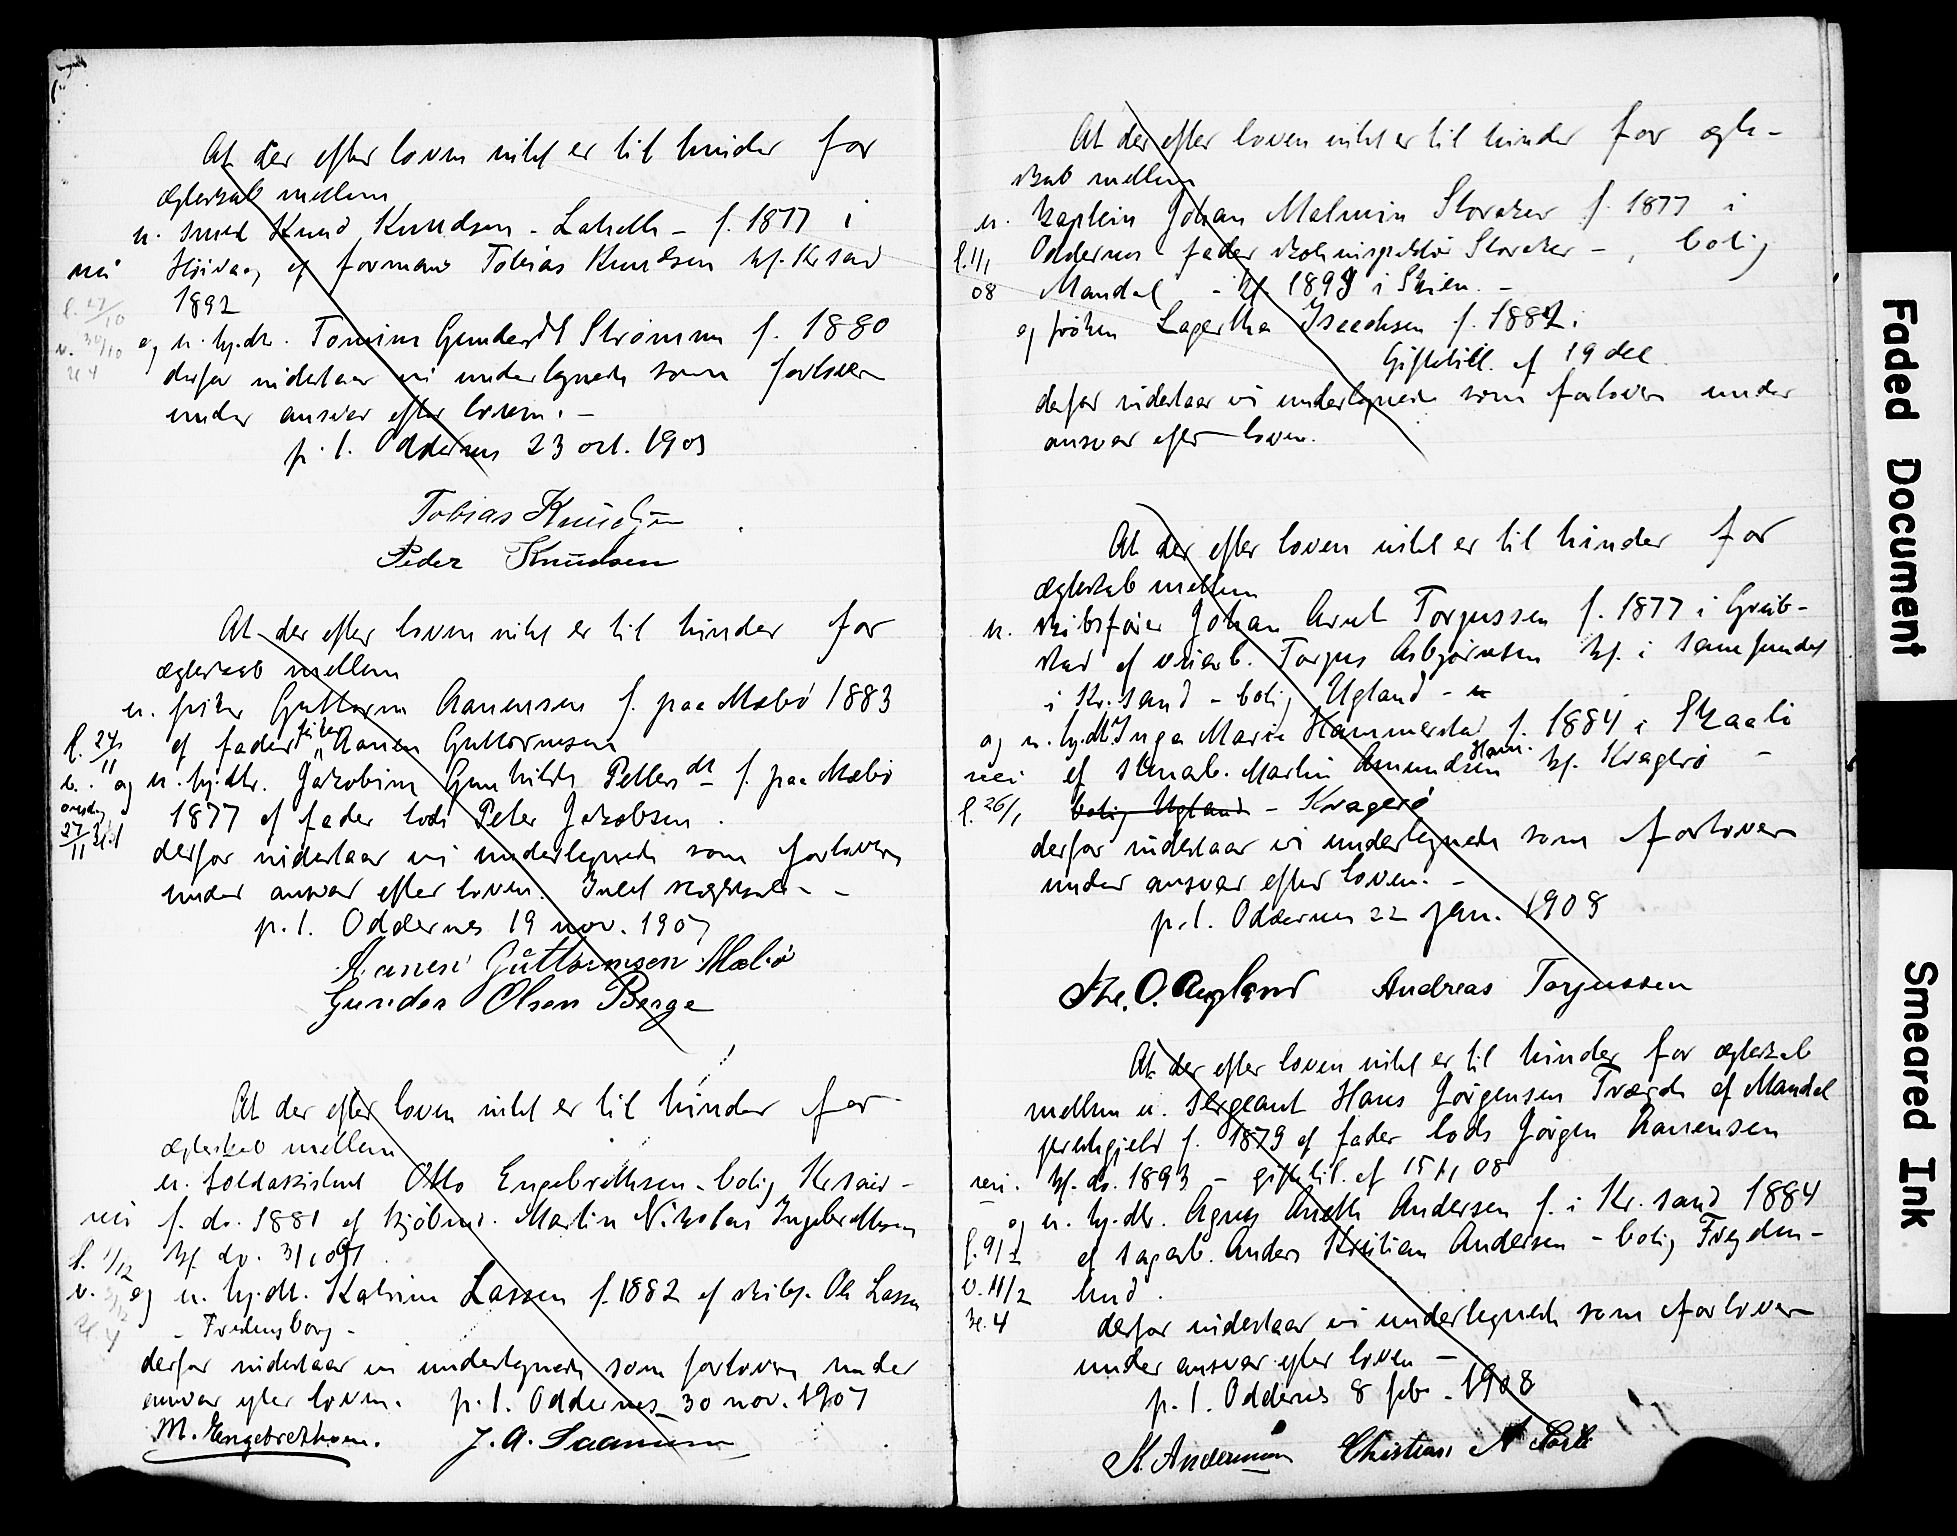 At der efter loven intet er til hinder for
ægteskab mellem
u. smed Knud Knudsen - f. 1877 i
nei Höivaag af formand Tobias Knudsen kf. Krsand
1892
og u. hj.dt. Tomine Gundersdt Strömme f. 1880
derfor indestaar vi undertegnede som forlovere
under ansvar efter loven. -
p. t. Oddernes 23 oct. 190
Tobias Knudsen
Peder Knudsen
At der efter loven intet er til hinder for
ægteskab mellem
u. fisker Guttorm Aanensen f. paa Mæbö 1883
l. 24/11 af fader fisker Aanen Guttormsen
v. og u. hj.dtr. Jakobine Gunhilde Pettersdt f. paa Mæbö
onsdag 27/11 1877 af fader lods Peter Jakobsen.
derfor indestaar vi undertegnede som forlovere
under ansvar efter loven. Intet -
p. t. Oddernes 19 nov. 1907
Aanen Guttormsen Mæbö
Gunder Olsen Berge
At der efter loven intet er til hinder for
ægteskab mellem
u. toldassistent Otto Engebrethsen - bolig Krsand -
nei f. do. 1881 af Martin Nikolai Ingebrethsen
l. 1/12 kf. do.
v. og u. hj.dt. Katrine Lassen f. 1882 af skibsf. Ole Lassen
- Fredensborg -
derfor indestaar vi undertegnede som forlovere under
ansvar efter loven. p. t. Oddernes 30 nov. 1907
M. Engebrethsen. J. A.
At der efter loven intet er til hinder for ægte-
skab mellem
u. kaptein Johan Malmin Storaker f. 1877 i
l. 1/1 Oddernes fader skoleinspektör Storaker - , bolig
08 Mandal - kf 1893 i Skien. -
og fröken Lagertha Isachsen f. 1882 i
Giftetill. af 19 dec.
derfor indestaar vi undertegnede som forlovere under
ansvar efter loven.
At der efter loven intet er til hinder for
ægteskab mellem
u. skibsförer Johan Arnt Torgussen f. 1877 i Greib-
stad af veiarb. Torgus Asbjörnsen kf. i samfundet
i Kr.sand - bolig Ugland -
og u. hj.dt. Inga Marie Hammerstad f. 1884 i Skaatö
nei af stenarb. Martin Amundsen Ham. kf. Kragerö -
l. 26/1 bolig Ugland - Kragerö
derfor indestaar vi undertegnede som forlovere
under ansvar efter loven. -
p. t. Oddernes 22 jan. 1908
O. Augland Andreas Torgussen
At der efter loven intet er til hinder for ægteskab
mellem u. sergeant Hans Jörgensen Tværde af Mandal
prestegjeld f. 1879 af fader lods Jörgen Aanensen
nei. kf. do. 1893 - giftetil. af 15/1 08
og u. hj.dtr. Agnes Anette Andersen f. i Kr.sand 1884
l. 9/2 af sagarb. Anders Kristian Andersen - bolig Frøyden-
v. 11/2 lund.
kl. 4 derfor indestaar vi undertegnede som forlovere
under ansvar efter loven -
p. t. Oddernes 8 feb. 1908
K. Andersen Christian A
Faded Document
Smeared Ink